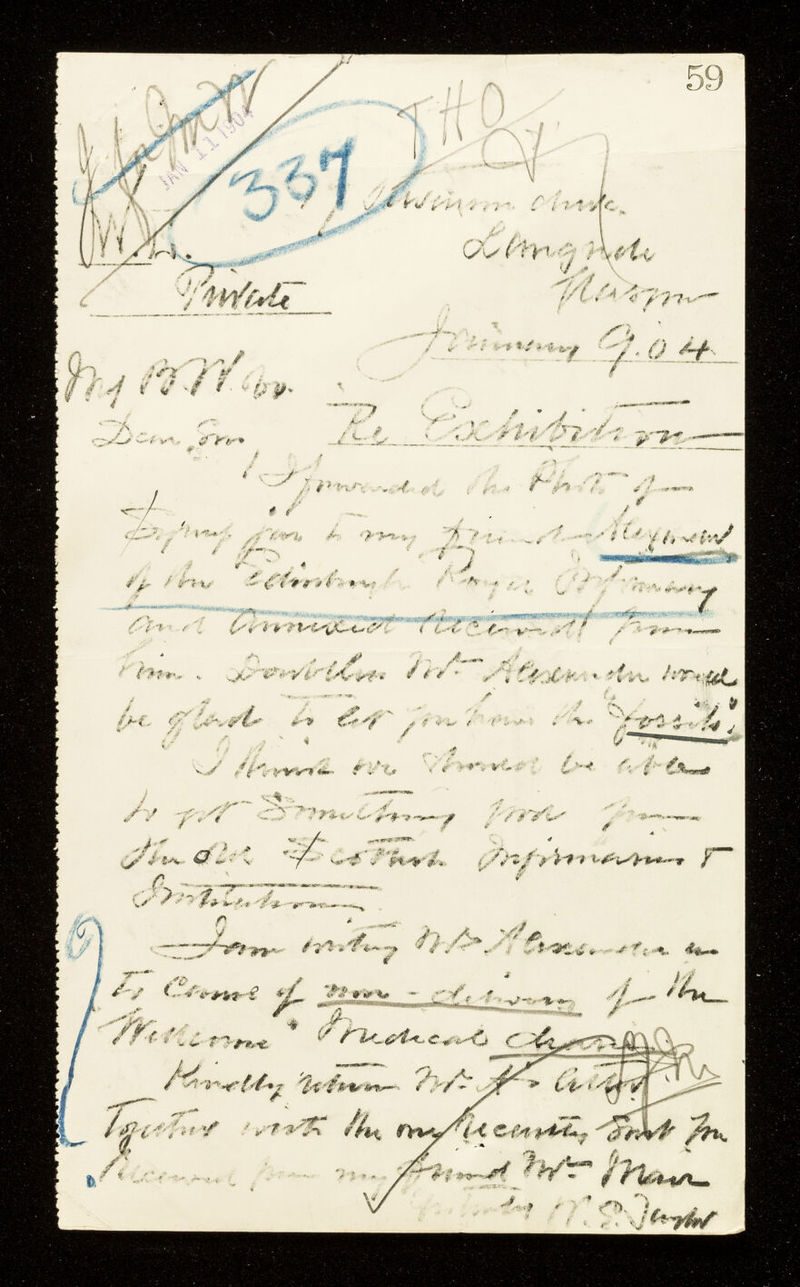 59
THO
JAN 11 1904
337
Private
Glasgow
January 9.04
B. W. Co.
Dear Sirs
Re Exhibition
I forwarded the Photo of
jar to my friend Alexander
of the Edinburgh Royal Infirmary
and annexed received from
him. Doubtless Mr. Alexander would
be glad to let you have the "fossils".
I think we should be able
to get something good from
the old Scottish Infirmaries &
Institutions
I am writing Mr Alexander as
to cause of non-delivery of the
Wellcome" Medical diary
Kindly return Mr. A's letter
together with the one recently sent you
received from my friend Mr. Mair
W. S. Taylor